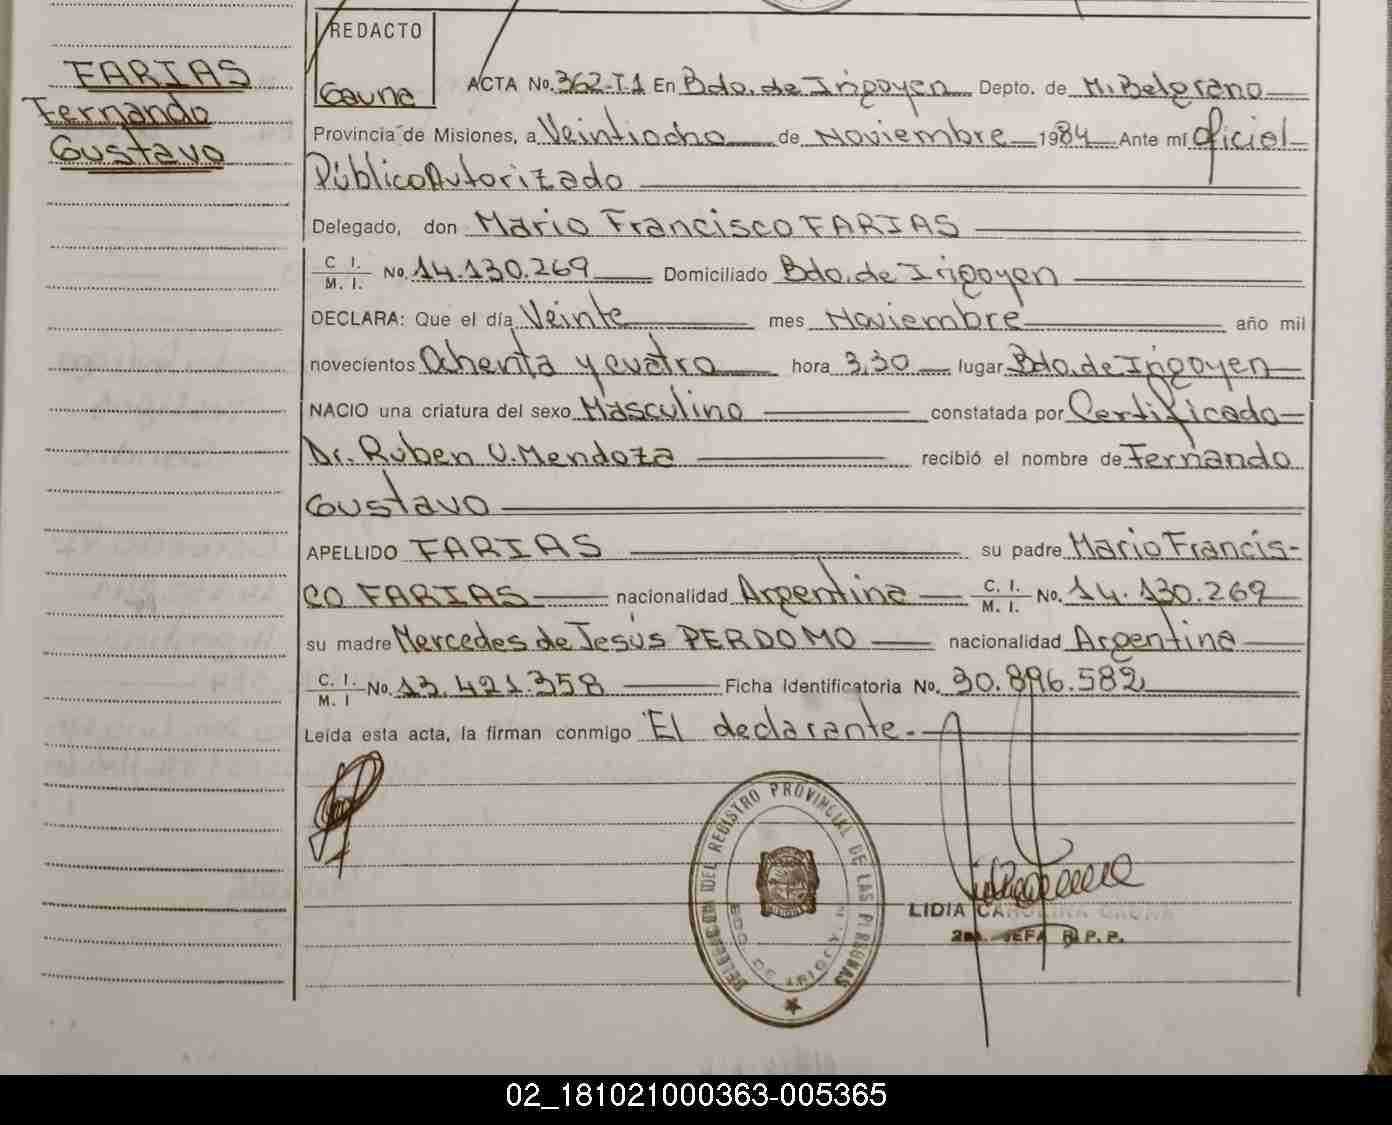 FARIAS
Fernando
Gustavo
REDACTO
Gauna
ACTA No. 362-T1 En Bdo. de Irigoyen Depto. de M. Belgrano
Provincia de Misiones, a Veintiocho de Noviembre 1984 Ante mí Oficial
Público Autorizado
Delegado, don Mario Francisco FARIAS
C. I. / M. I. No. 14.130.269 Domiciliado Bdo. de Irigoyen
DECLARA: Que el día Veinte mes Noviembre año mil
novecientos Ochenta y cuatro hora 3,30 lugar Bdo. de Irigoyen
NACIO una criatura del sexo Masculino constatada por Certificado
Dr. Ruben U. Mendoza recibió el nombre de Fernando
Gustavo
APELLIDO FARIAS su padre Mario Francis-
co FARIAS nacionalidad Argentina C. I. / M. I. No. 14.130.269
su madre Mercedes de Jesús PERDOMO nacionalidad Argentina
C. I. / M. I No. 13.421.358 Ficha Identificatoria No. 30.896.582
Leída esta acta, la firman conmigo El declarante.-
DELEGACION DEL REGISTRO PROVINCIAL DE LAS PERSONAS
BDO. DE IRIGOYEN
LIDIA CAROLINA GAUNA
JEFA R.P.P.
02_181021000363-005365